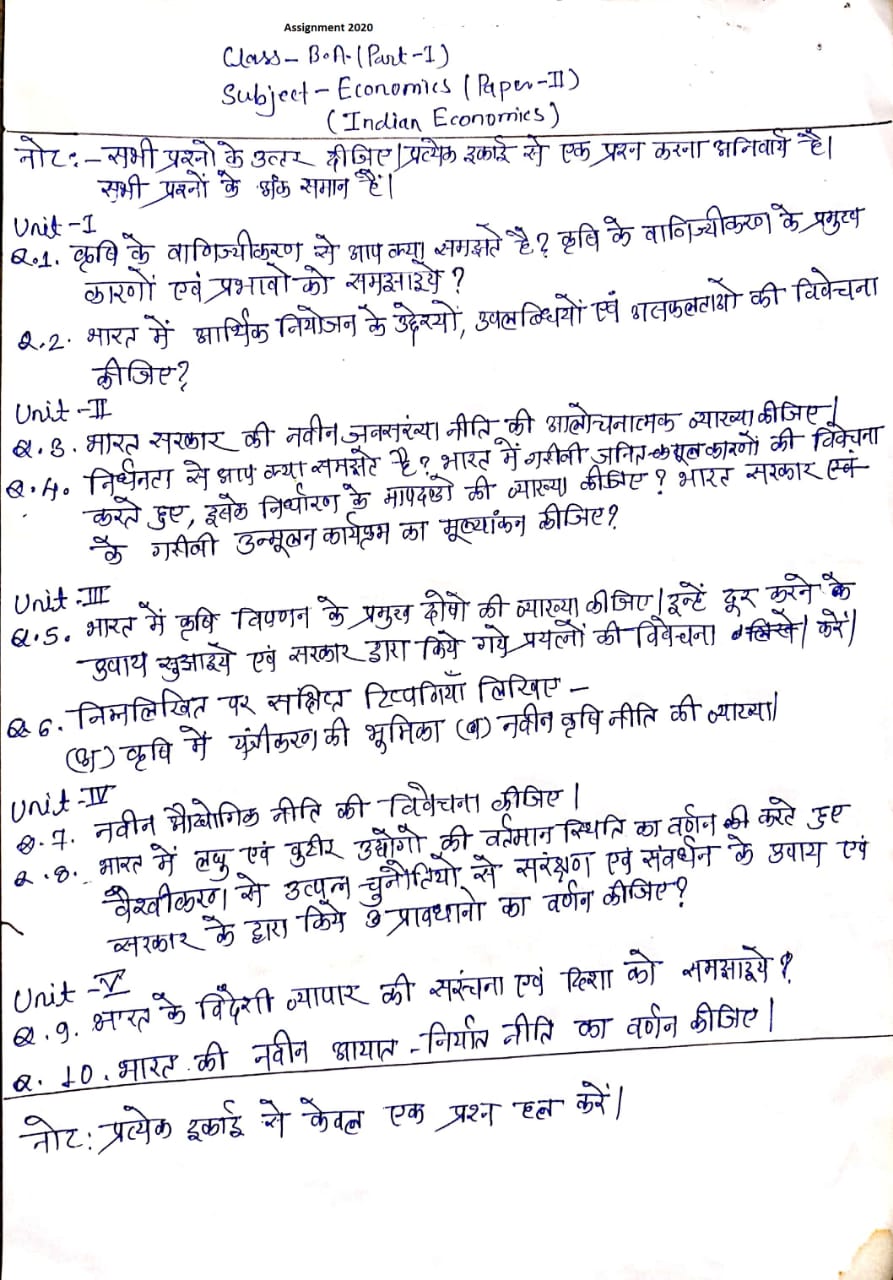 Assignment 2020
Class - B.A. (Part-I)
Subject - Economics (Paper-II)
(Indian Economics)
नोट :- सभी प्रश्नों के उत्तर दीजिए। प्रत्येक इकाई से एक प्रश्न करना अनिवार्य है।
सभी प्रश्नों के अंक समान हैं।
Unit - I
Q.1. कृषि के वाणिज्यीकरण से आप क्या समझते है? कृषि के वाणिज्यीकरण के प्रमुख
कारणों एवं प्रभावों को समझाइये?
Q.2. भारत में आर्थिक नियोजन के उद्देश्यों, उपलब्धियों एवं असफलताओं की विवेचना
कीजिए?
Unit - II
Q.3. भारत सरकार की नवीन जनसंख्या नीति की आलोचनात्मक व्याख्या कीजिए।
Q.4. निर्धनता से आप क्या समझते है? भारत में गरीबी जनित मूल कारणों की विवेचना
करते हुए, इसके निर्धारण के मापदण्डो की व्याख्या कीजिए? भारत सरकार
के गरीबी उन्मूलन कार्यक्रम का मूल्यांकन कीजिए?
Unit - III
Q.5. भारत में कृषि विपणन के प्रमुख दोषो की व्याख्या कीजिए। इन्हें दूर करने के
उपाय सुझाइये एवं सरकार द्वारा किये गये प्रयत्नों की विवेचना करें।
Q 6. निम्नलिखित पर संक्षिप्त टिप्पणियाँ लिखिए -
(अ) कृषि में यंत्रीकरण की भूमिका (ब) नवीन कृषि नीति की व्याख्या।
Unit - IV
Q.7. नवीन औद्योगिक नीति की विवेचना कीजिए।
Q.8. भारत में लघु एवं कुटीर उद्योगो की वर्तमान स्थिति का वर्णन करते हुए
वैश्वीकरण से उत्पन्न चुनौतियो से सरंक्षण एवं संवर्धन के उपाय एवं
सरकार के द्वारा किये प्रावधानो का वर्णन कीजिए?
Unit - V
Q.9. भारत के विदेशी व्यापार की सरंचना एवं दिशा को समझाइये?
Q.10. भारत की नवीन आयात - निर्यात नीति का वर्णन कीजिए।
नोट: प्रत्येक इकाई से केवल एक प्रश्न हल करें।